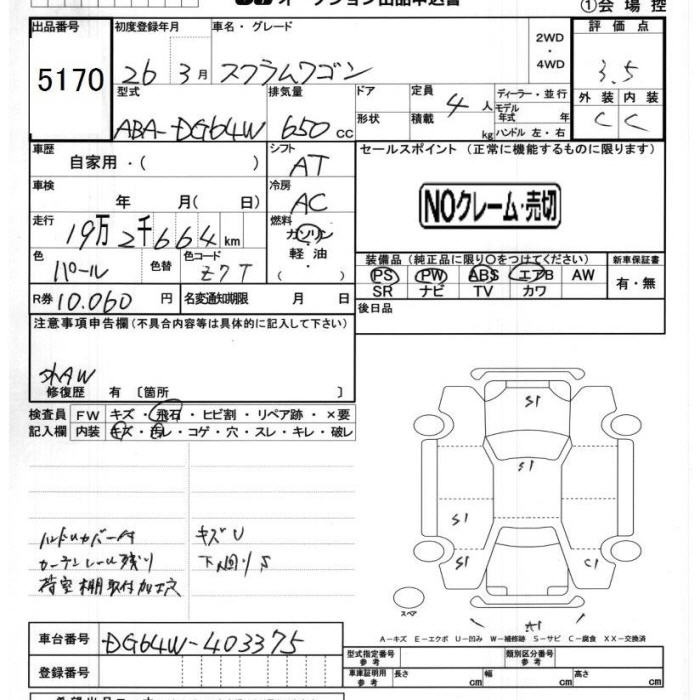 オークション出品申込書
①会場控
出品番号 初度登録年月 車名・グレード 2WD・4WD 評価点
5170 26年3月 スクラムワゴン 3.5
型式 排気量 ドア 定員 4人 ディーラー・並行 外装 内装
ABA-DG64W 650cc 形状 積載 kg モデル年式 年 ハンドル 左・右 C C
車歴 自家用・( ) シフト AT セールスポイント(正常に機能するものに限ります)
車検 年 月( 日) 冷房 AC NOクレーム・売切
走行 19万2千664km 燃料 ガソリン・軽油・( )
装備品(純正品に限り○をつけてください) 新車保証書
色 パール 色替 色コード Z7T PS PW ABS エアB AW 有・無
SR ナビ TV カワ
R券 10.060円 名変通知期限 月 日 後日品
注意事項申告欄(不具合内容等は具体的に記入して下さい)
外AW
修復歴 有 〔箇所 〕
検査員 FW キズ・飛石・ヒビ割・リペア跡・×要
記入欄 内装 キズ・汚レ・コゲ・穴・スレ・キレ・破レ
ハンドルカバー付 キズU
カーテンレール残り 下回りS
荷室棚取付加工穴
S1
S1
S1
S1 C1
A1
スペア
A-キズ E-エクボ U-凹み W-補修跡 S-サビ C-腐食 XX-交換済
車台番号 DG64W-403375
型式指定番号 参考 類別区分番号 参考
登録番号 車庫証明用 参考 長さ cm 幅 cm 高さ cm